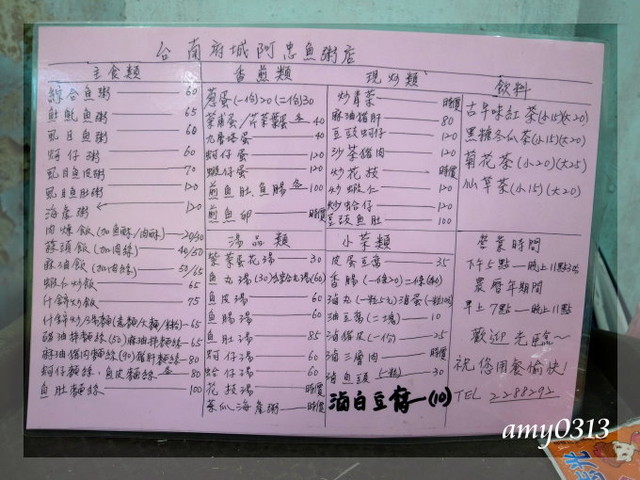 台南府城阿忠魚粥店
主食類
綜合魚粥 60
魠魠魚粥 65
虱目魚粥 60
蚵仔粥 60
虱目魚皮粥 70
虱目魚肚粥 120
海產粥 120
肉燥飯(加魚酥/肉酥) 20/30
蒜頭飯(加肉絲) 40/50
麻油飯(加肉絲)
蝦仁炒飯 65
什錦炒飯 75
什錦炒 65
麻油拌麵線 65
麻油豬肉麵線(90) 80
蚵仔麵線、魚皮麵線 80
魚肚麵線 100
香煎類
蔥蛋(一個)20(二個)30
菜脯蛋 40
九層塔蛋 40
蚵仔蛋 120
蝦仔蛋 120
煎魚肚魚腸 100
煎魚卵 時價
湯品類
紫菜蛋花湯 30
魚丸湯(30)
魚皮湯 60
魚腸湯 60
魚肚湯 85
蚵仔湯 60
蛤仔湯 60
花枝湯 時價
菜瓜海產粥 時價
現炒類
炒青菜 時價
麻油豬肝 80
豆豉蚵仔 120
沙茶豬肉 120
炒花枝 時價
炒蝦仁 120
炒蛤仔 120
豆豉魚肚 100
小菜類
皮蛋豆腐 35
香腸(一條20)二條(40)
滷丸(一粒5元)滷蛋(一粒10)
油豆腐(二塊) 10
滷豬皮(一份) 25
滷三層肉 時價
滷魚頭(一粒) 30
滷白豆腐(10)
飲料
古早味紅茶(小15)(大20)
黑糖冬瓜茶(小15)(大20)
菊花茶(小20)(大25)
仙草茶(小15)(大20)
營業時間
下午5點—晚上11點30分
農曆年期間
早上7點—晚上11點
歡迎光臨~
祝您用餐愉快!
TEL 2288292
amy0313